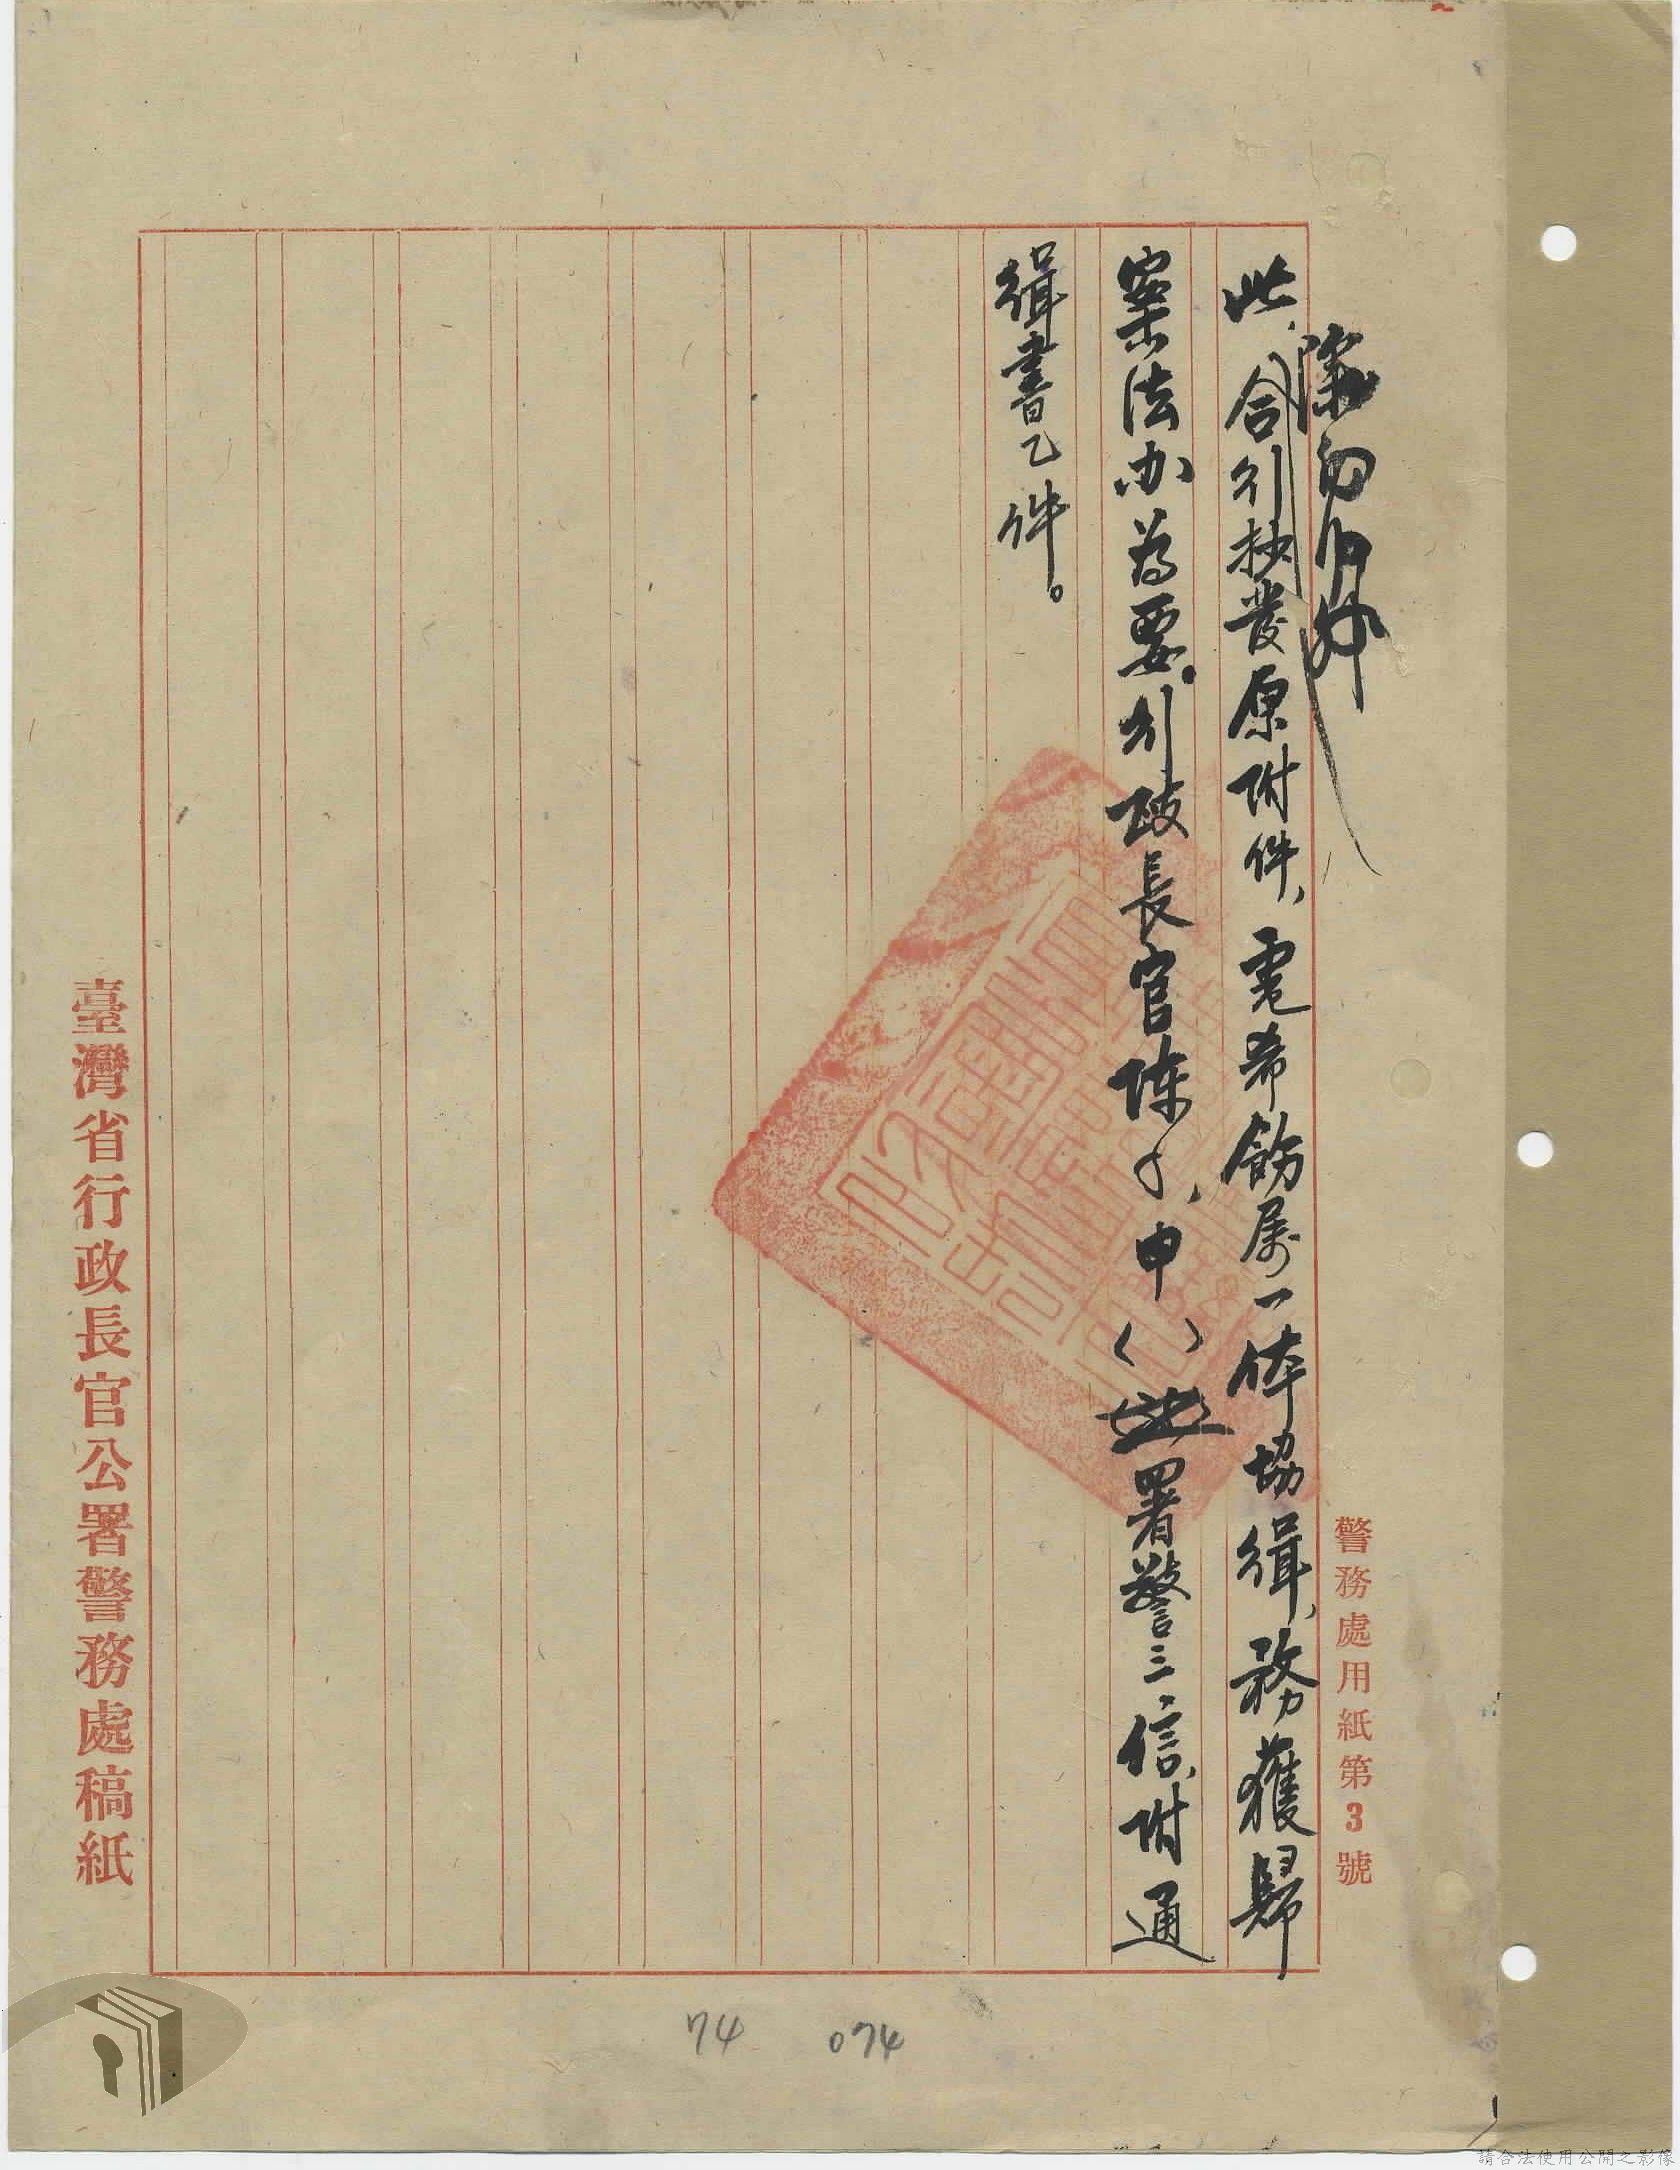 警務處用紙第3號
除分行外
此，合行抄發原附件，電希飭属一体協緝，務獲歸
案法办為要。行政長官陳〇、申（ ）署警三信，附通
緝書乙件。
臺灣省行政長官公署警務處稿紙
74 074
請合法使用公開之影像